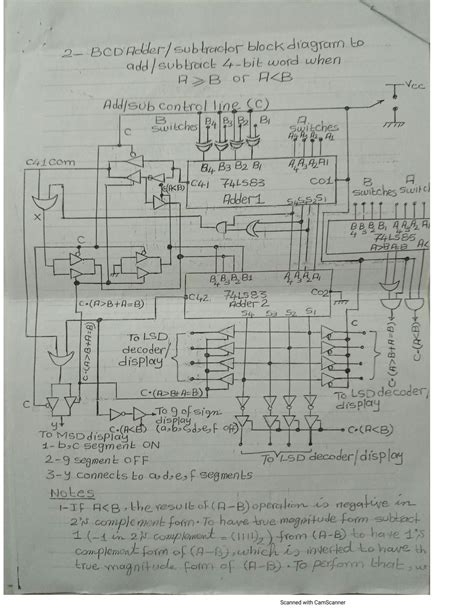 2- BCD Adder/subtractor block diagram to
add/subtract 4-bit word when
A⩾B or A<B
VCC
Add/sub control line (C)
B
switches
A
switches
C
B4 B3 B2 B1
A4 A3 A2 A1
C41Com
B4 B3 B2 B1
A4 A3 A2 A1
C41
74LS83
C01
Adder 1
S4 S3 S2 S1
(A<B)
X
B
switches
A
switches
B4 B3 B2 B1
A4 A3 A2 A1
74LS85
A>B A=B A<B
C
B4 B3 B2 B1
A4 A3 A2 A1
C42
74LS83
C02
Adder 2
S4 S3 S2 S1
C•(A>B+A=B)
C
To LSD
decoder/
display
C•(A>B+A=B)
C•(A>B+A=B)
C•(A>B+A=B)
C•(A<B)
To LSD decoder/
display
C
y
C•(A<B)
To g of sign
display
(a,b,c,d,e,f off)
C•(A<B)
To LSD decoder/display
To MSD display
1-b,c segment ON
2-g segment OFF
3-y connects to a,d,e,f segments
Notes
1-If A<B, the result of (A-B) operation is negative in
2's complement form. To have true magnitude form subtract
1 (-1 in 2's complement = (1111)2) from (A-B) to have 1's
complement form of (A-B), which is inverted to have th
true magnitude form of (A-B). To perform that,
Scanned with CamScanner